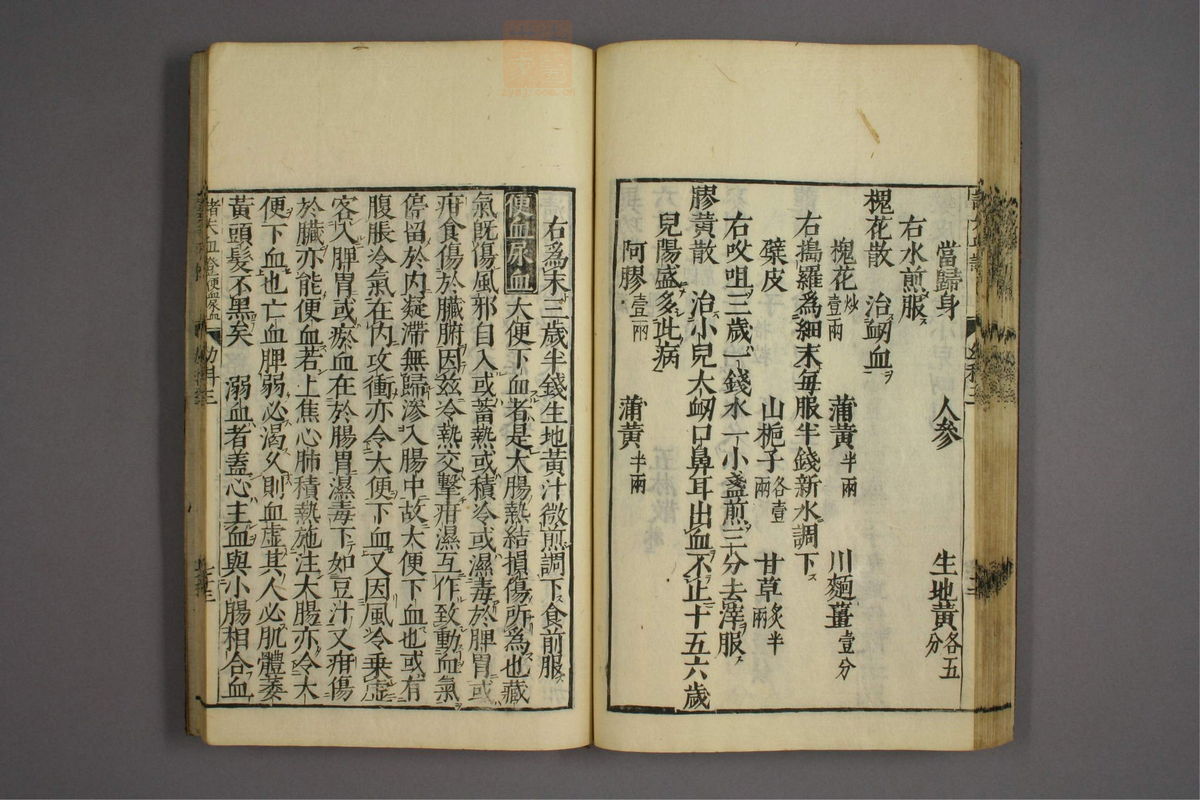 當歸身 人參 生地黃各五分
右水煎服
槐花散 治衂血
槐花炒壹兩 蒲黃半兩 川麵薑壹分
右搗羅爲細末每服半錢新水調下
糵皮 山梔子各壹兩 甘草炙半兩
右㕮咀三歲一錢水一小盞煎三分去滓服
膠黃散 治小兒大衂口鼻耳出血不止十五六歲
兒陽盛多此病
阿膠壹兩 蒲黃半兩
右爲末三歲半錢生地黃汁微煎調下食前服
便血尿血 大便下血者是大腸熱結損傷所爲也藏
氣旣傷風邪自入或蓄熱或積冷或濕毒於脾胃或
疳食傷於臓腑因茲冷熱交擊疳濕互作致動血氣
停留於内凝滯無歸滲入腸中故大便下血也或有
腹脹冷氣在内攻衝亦令大便下血又因風冷乗虛
客入脾胃或瘀血在於腸胃濕毒下如豆汁又疳傷
於臓亦能便血若上焦心肺積熱施注大腸亦令大
便下血也亡血脾弱必渴久則血虛其人必肌體萎
黃頭髮不黑矣 溺血者蓋心主血與小腸相合血
諸大血證便血尿血 幼科三 七十三